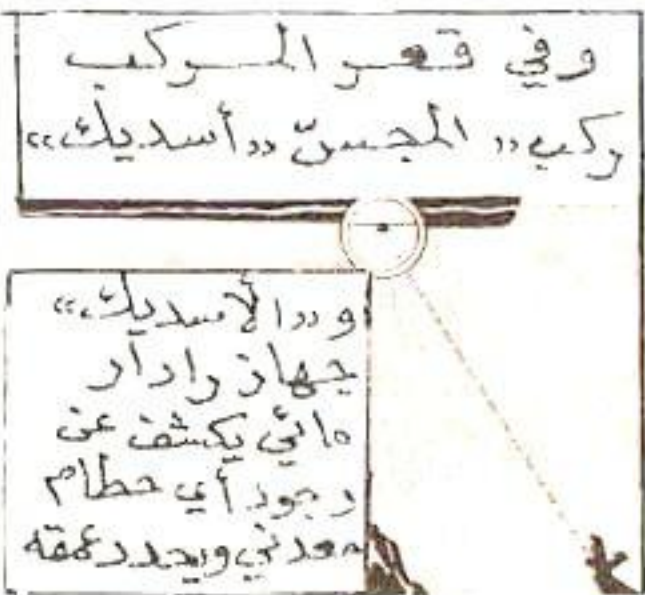 وفي قعر المركب
ركب «المجسّ «أسديك»
و«الأسديك»
جهاز رادار
مائي يكشف عن
وجود أي حطام
معدني ويحدد عمقه